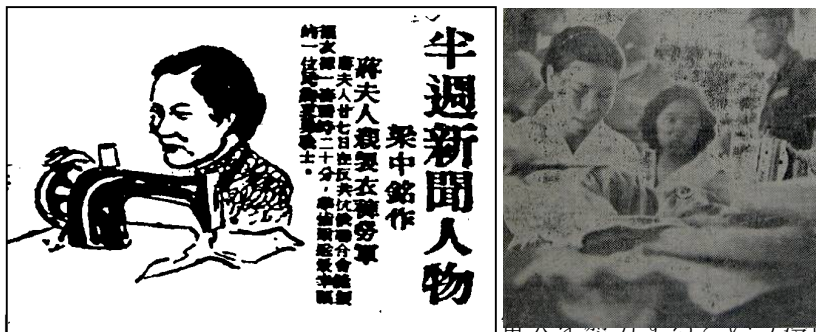 半週新聞人物
梁中銘作
蔣夫人親製衣褲勞軍
蔣夫人廿七日在反共抗俄聯合會縫製
衣褲一時二十分，準備贈送最幸運
的一位戰士。